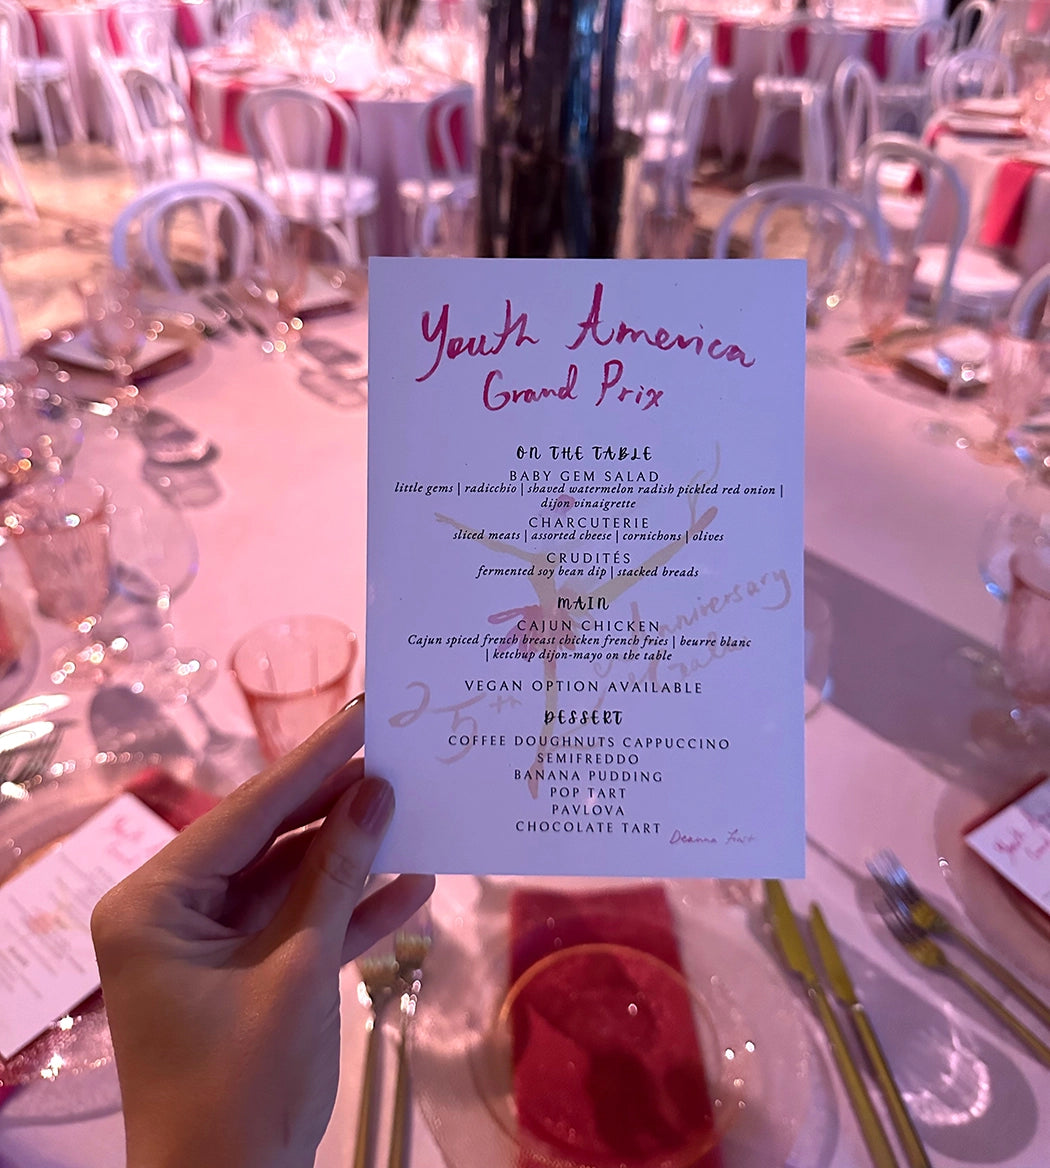 Youth America
Grand Prix
ON THE TABLE
BABY GEM SALAD
little gems | radicchio | shaved watermelon radish pickled red onion |
dijon vinaigrette
CHARCUTERIE
sliced meats | assorted cheese | cornichons | olives
CRUDITÉS
fermented soy bean dip | stacked breads
MAIN
CAJUN CHICKEN
Cajun spiced french breast chicken french fries | beurre blanc
| ketchup dijon-mayo on the table
VEGAN OPTION AVAILABLE
25th Anniversary
DESSERT
COFFEE DOUGHNUTS CAPPUCCINO
SEMIFREDDO
BANANA PUDDING
POP TART
PAVLOVA
CHOCOLATE TART
Deanna